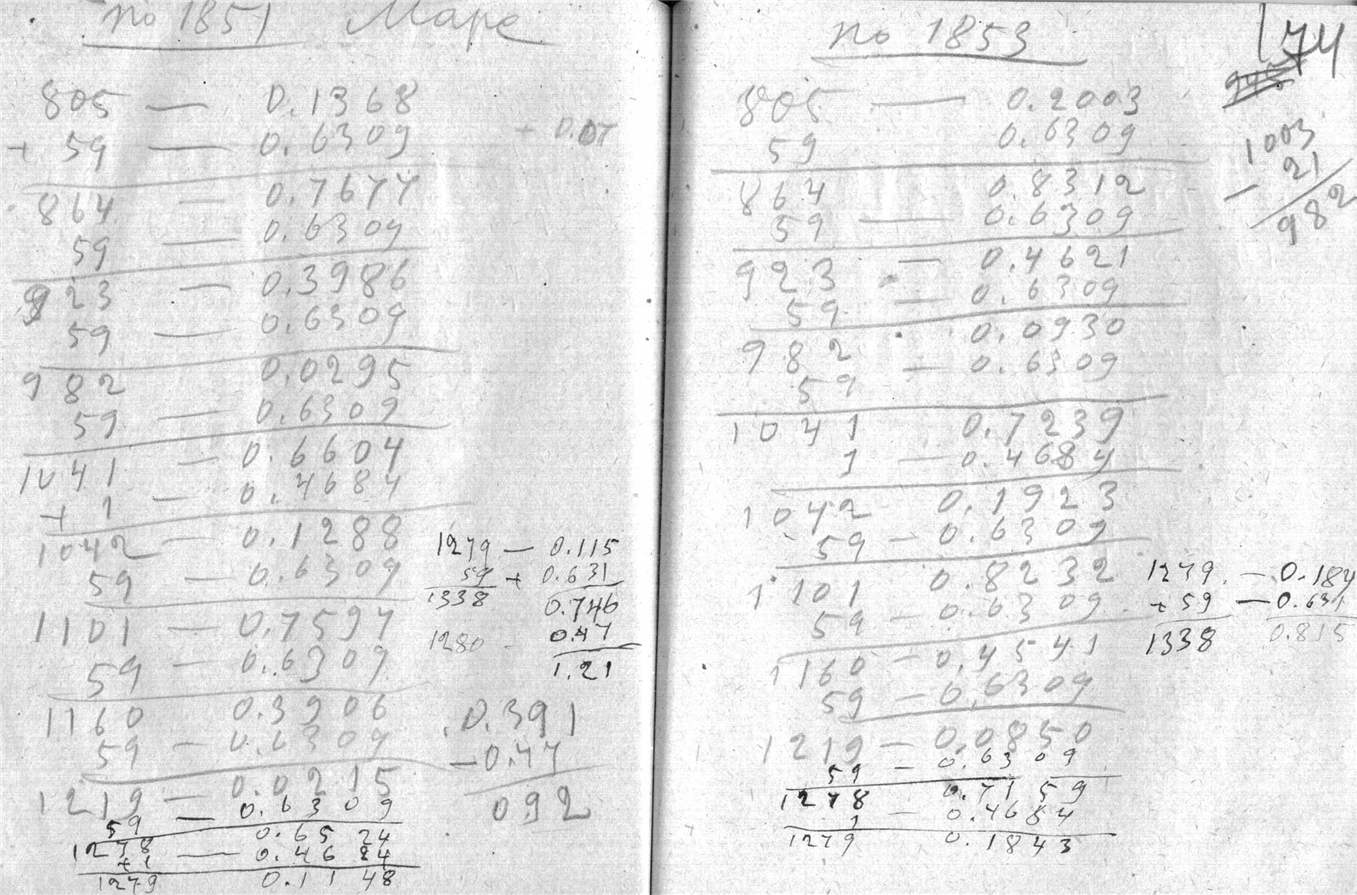 по 1851 Марс
805 — 0.1368
+ 59 — 0.6309
+ 0.07
864 — 0.7677
59 — 0.6309
923 — 0.3986
59 — 0.6309
982 0.0295
59 — 0.6309
1041 — 0.6604
+ 1 — 0.4684
1042 — 0.1288
59 — 0.6309
1101 — 0.7597
59 — 0.6309
1160 0.3906
59 — 0.6309
1219 — 0.0215
59 — 0.6309
1278 0.6524
+1 — 0.4684
1279 0.1148
1279 — 0.115
59 + 0.631
1338 0.746
1280 0.47
1.21
0.391
—0.47
092
по 1853
174
805 — 0.2003
59 0.6309
864 0.8312
59 — 0.6309
923 — 0.4621
59 — 0.6309
982 0.0930
59 — 0.6309
1041 0.7239
1 — 0.4684
1042 0.1923
59 — 0.6309
1101 0.8232
59 — 0.6309
1160 — 0.4541
59 — 0.6309
1219 — 0.0850
59 — 0.6309
1278 0.7159
1 — 0.4684
1279 0.1843
1003
— 21
982
1279 — 0.184
+ 59 — 0.631
1338 0.815